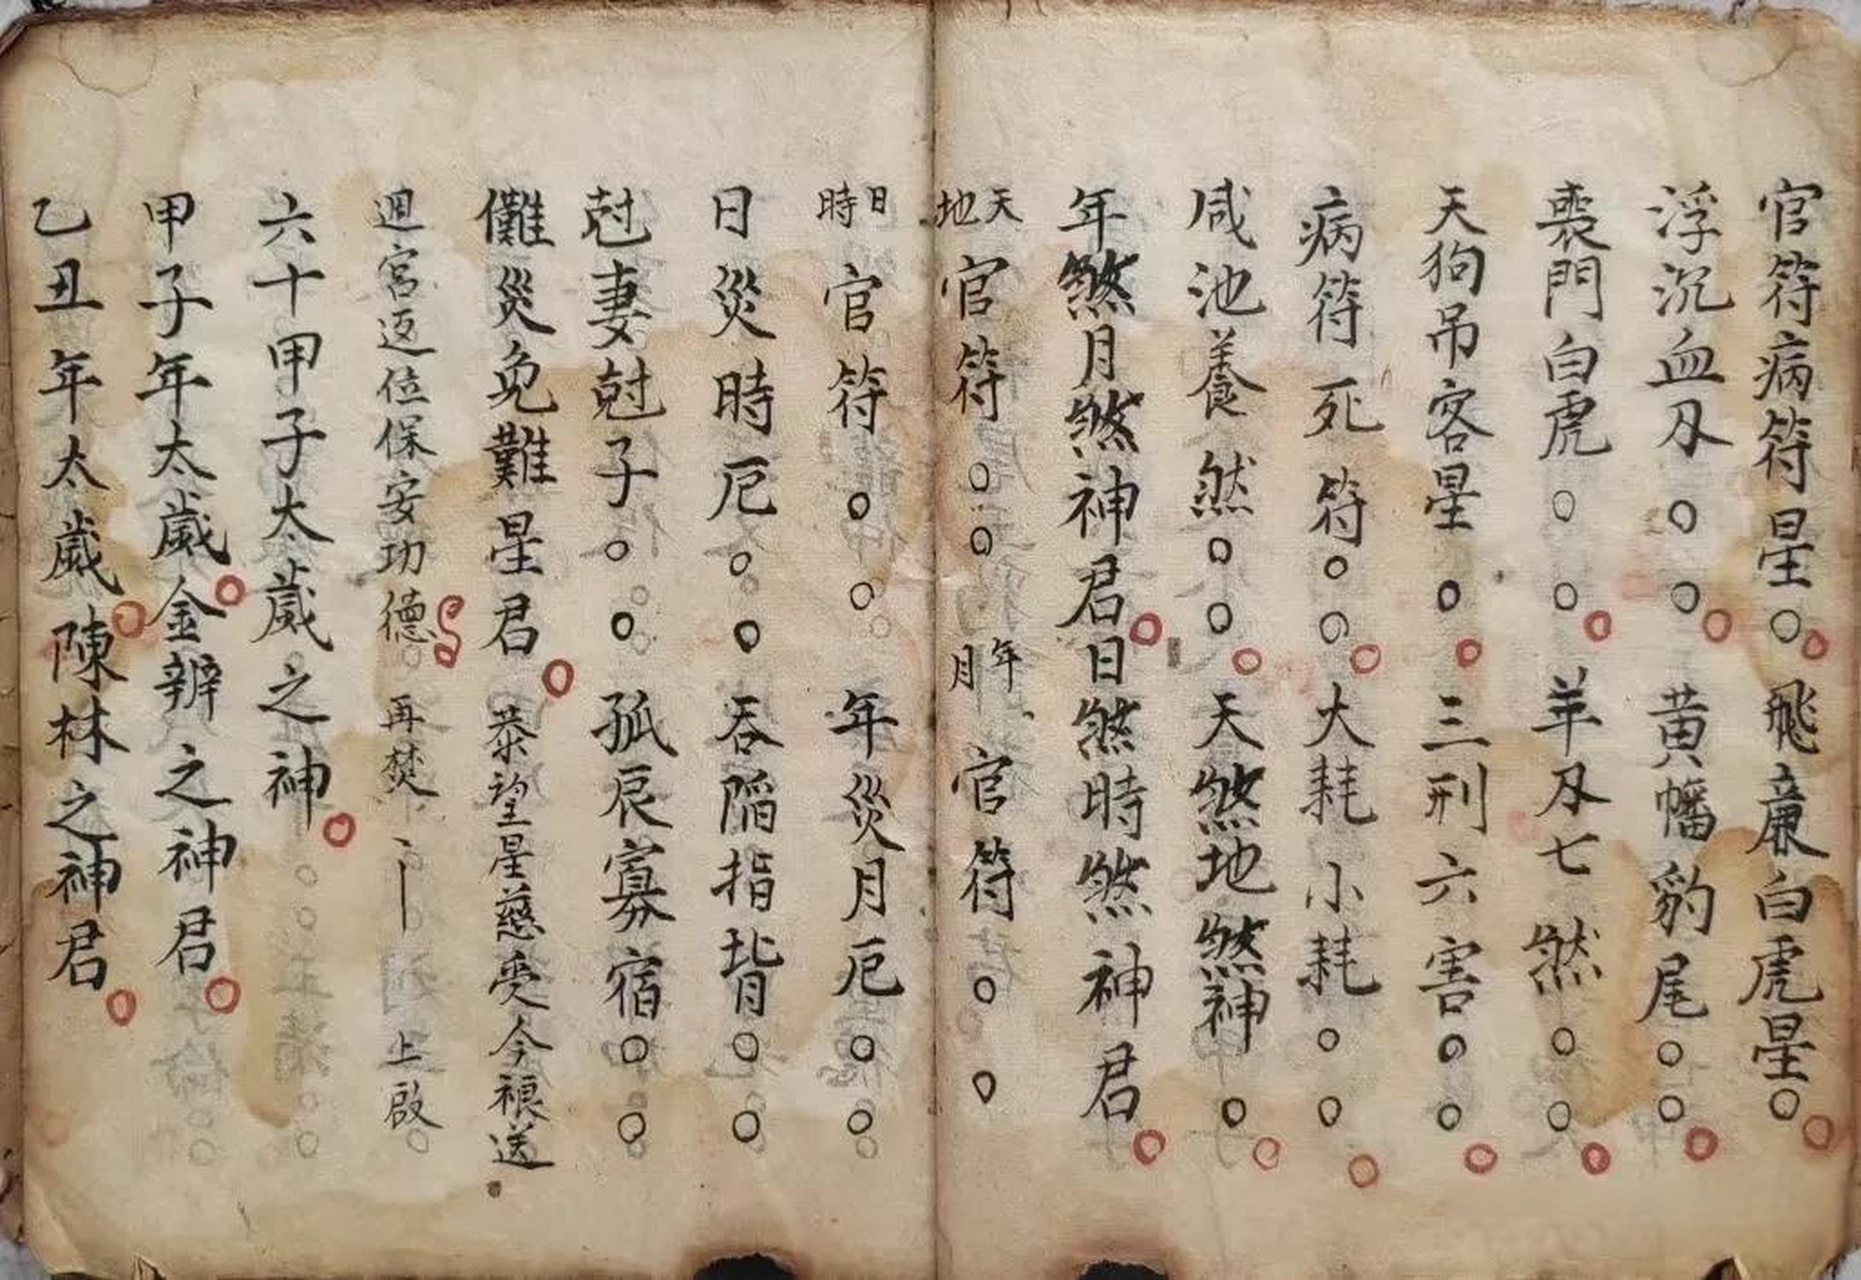 官符病符星○飛廉白虎星○
浮沉血刃○○黄幡豹尾○○
喪門白虎○○羊刃七煞○○
天狗吊客星○三刑六害○○
病符死符○○大耗小耗○○
咸池養煞○○天煞地煞神○
年煞月煞神君日煞時煞神君
天地官符○○年月官符○○
日時官符○○年災月厄○○
日災時厄○○吞陷指背○○
尅妻尅子○○孤辰寡宿○○
儺災免難星君恭望星慈受今禳送
迴宫返位保安功德再焚上啟
六十甲子太歲之神
甲子年太歲金辦之神君
乙丑年太歲陳林之神君